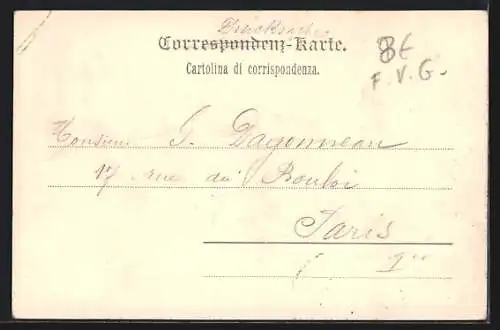 Drucksache
Correspondenz-Karte.
Cartolina di corrispondenza.
8€
F. V. G.
Monsieur G. Dagonneau
17 rue du Bouloi
Paris
1er